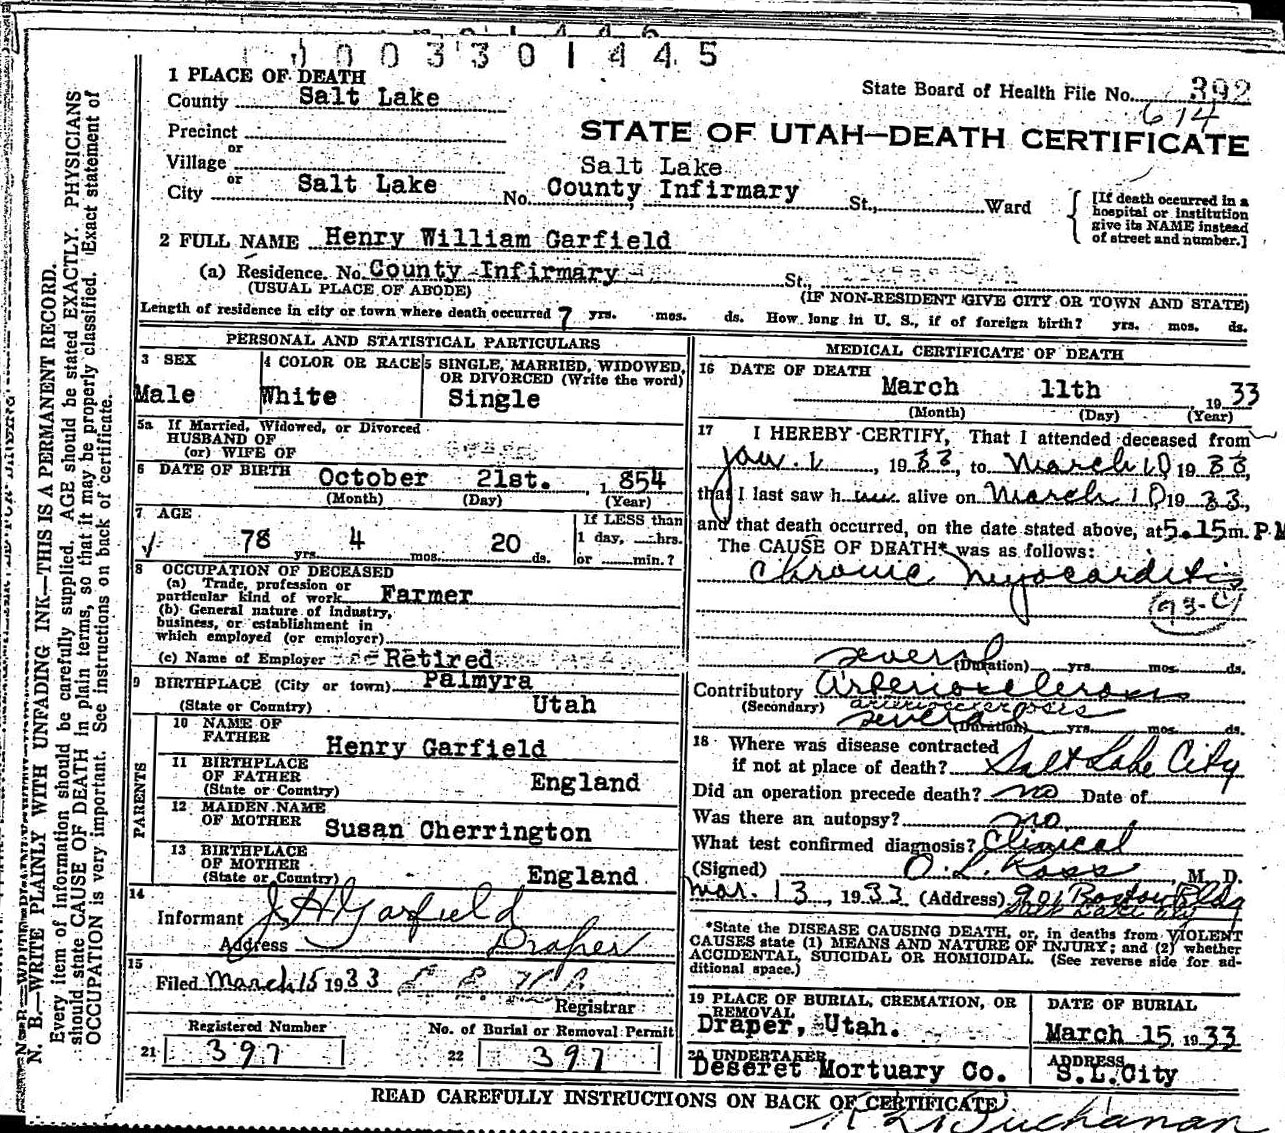 0003301445
State Board of Health File No. 392
614
1 PLACE OF DEATH
County Salt Lake
STATE OF UTAH—DEATH CERTIFICATE
Precinct
or
Village
or
City Salt Lake No. Salt Lake County Infirmary St., Ward
[If death occurred in a hospital or institution give its NAME instead of street and number.]
2 FULL NAME Henry William Garfield
(a) Residence. No. County Infirmary St.,
(USUAL PLACE OF ABODE) (IF NON-RESIDENT GIVE CITY OR TOWN AND STATE)
Length of residence in city or town where death occurred 7 yrs. mos. ds. How long in U. S., if of foreign birth? yrs. mos. ds.
PERSONAL AND STATISTICAL PARTICULARS
3 SEX
Male
4 COLOR OR RACE
White
5 SINGLE, MARRIED, WIDOWED, OR DIVORCED (Write the word)
Single
5a If Married, Widowed, or Divorced
HUSBAND OF
(or) WIFE OF
6 DATE OF BIRTH October 21st. , 1854
(Month) (Day) (Year)
7 AGE
78 yrs. 4 mos. 20 ds.
If LESS than
1 day, hrs.
or min.?
8 OCCUPATION OF DECEASED
(a) Trade, profession or
particular kind of work Farmer
(b) General nature of Industry,
business, or establishment in
which employed (or employer)
(c) Name of Employer Retired
9 BIRTHPLACE (City or town) Palmyra
(State or Country) Utah
PARENTS
10 NAME OF
FATHER Henry Garfield
11 BIRTHPLACE
OF FATHER
(State or Country) England
12 MAIDEN NAME
OF MOTHER Susan Cherrington
13 BIRTHPLACE
OF MOTHER
(State or Country) England
14
Informant J H Garfield
Address Draper
15
Filed March 15 1933
Registrar
Registered Number
21 397
No. of Burial or Removal Permit
22 397
MEDICAL CERTIFICATE OF DEATH
16 DATE OF DEATH
March 11th 1933
(Month) (Day) (Year)
17 I HEREBY CERTIFY, That I attended deceased from
Jan. 1, 1933, to March 10 1933,
that I last saw him alive on March 10, 1933,
and that death occurred, on the date stated above, at 5.15 m. P.M
The CAUSE OF DEATH* was as follows:
Chronic Myocarditis
93-C
several (Duration) yrs. mos. ds.
Contributory Arteriosclerosis
(Secondary) arteriosclerosis
several (Duration) yrs. mos. ds.
18 Where was disease contracted
if not at place of death? Salt Lake City
Did an operation precede death? no Date of
Was there an autopsy? no
What test confirmed diagnosis? Clinical
(Signed) O. L. Ross, M. D.
Mar. 13, 1933 (Address) 901 Boston Bldg
Salt Lake City
*State the DISEASE CAUSING DEATH, or, in deaths from VIOLENT
CAUSES state (1) MEANS AND NATURE OF INJURY; and (2) whether
ACCIDENTAL, SUICIDAL OR HOMICIDAL. (See reverse side for ad-
ditional space.)
19 PLACE OF BURIAL, CREMATION, OR
REMOVAL
Draper, Utah.
DATE OF BURIAL
March 15 1933
20 UNDERTAKER
Deseret Mortuary Co.
ADDRESS
S.L.City
READ CAREFULLY INSTRUCTIONS ON BACK OF CERTIFICATE
Buchanan
N. B.—WRITE PLAINLY WITH UNFADING INK—THIS IS A PERMANENT RECORD.
Every item of information should be carefully supplied. AGE should be stated EXACTLY. PHYSICIANS
should state CAUSE OF DEATH in plain terms, so that it may be properly classified. Exact statement of
OCCUPATION is very important. See instructions on back of certificate.